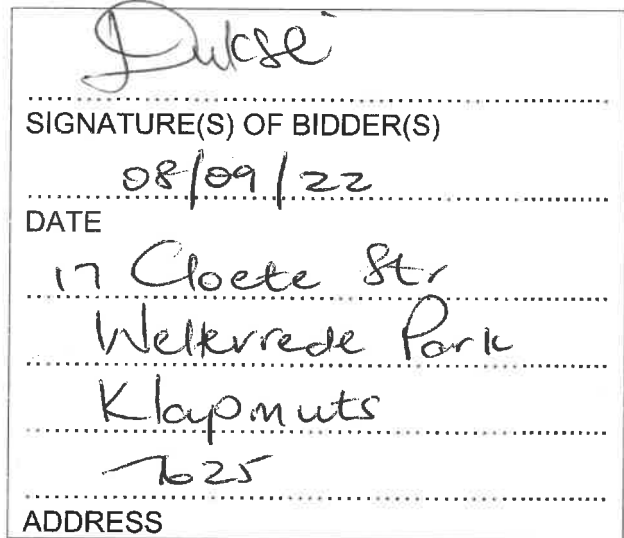 SIGNATURE(S) OF BIDDER(S)
08/09/22
DATE
17 Cloete Str
Welkvrede Park
Klapmuts
7625
ADDRESS